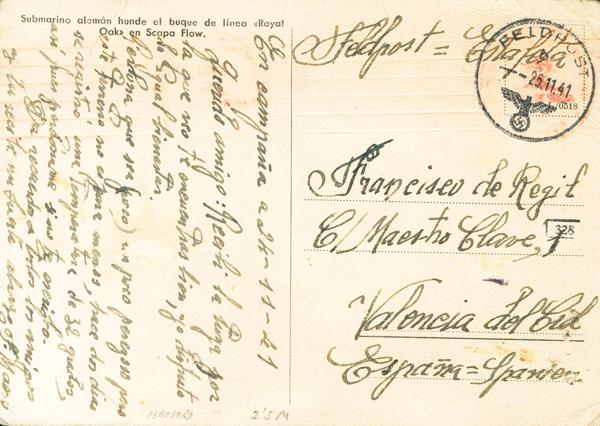 Submarino alemán hunde el buque de línea «Royal
Oak» en Scapa Flow.
En campaña a 24-11-41
Querido amigo: Recibí la tuya por
la que veo te encuentras bien, yo disfruto
de igual bienestar.
Perdona que sea (seco) un poco perezoso pero
este terreno no es por menos, hace dos días
se registró una temperatura de 32 grados
así pues perdoname si no te escribo.
Da recuerdos a todos los amigos
y tu recibe un fuerte abrazo de
Feldpost = Estafeta
FELDPOST
b
-25.11.41
0518
Francisco de Regil
C/ Maestro Clave, 1
328
Valencia del Cid
España = Spanien
2'5 M